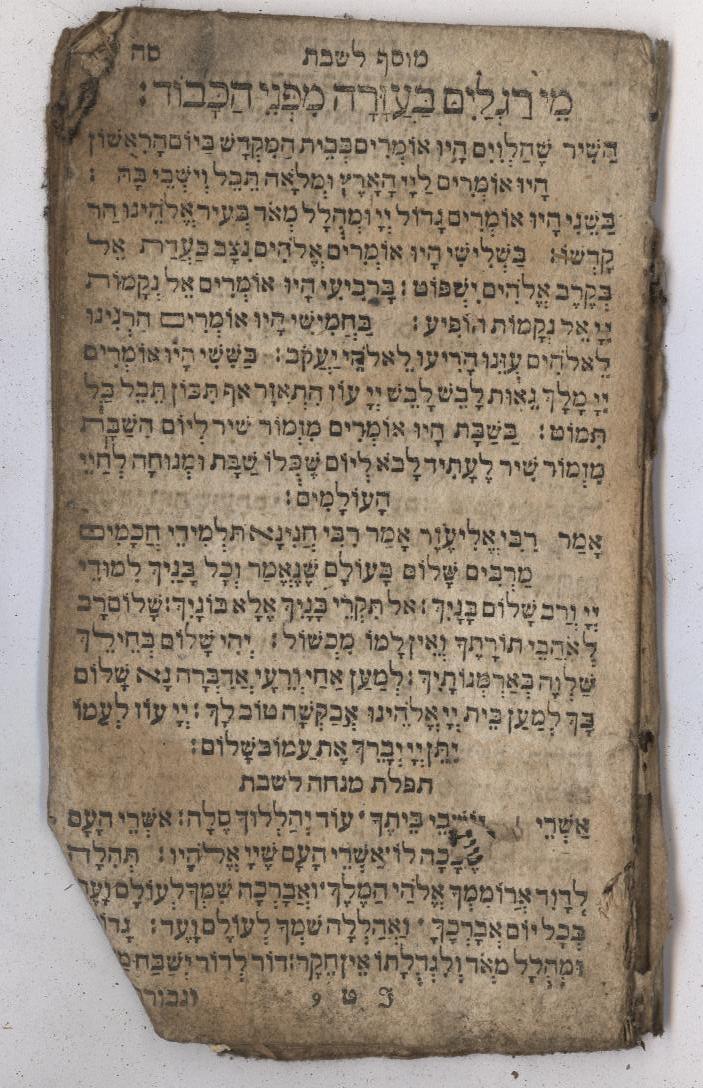 מוסף לשבת סה
מֵי רַגְלַיִם בַּעֲזָרָה מִפְּנֵי הַכָּבוֹד:
הַשִּׁיר שֶׁהַלְוִיִּם הָיוּ אוֹמְרִים בְּבֵית הַמִּקְדָּשׁ בַּיּוֹם הָרִאשׁוֹן
הָיוּ אוֹמְרִים לַיְיָ הָאָרֶץ וּמְלוֹאָהּ תֵּבֵל וְיֹשְׁבֵי בָהּ :
בַּשֵּׁנִי הָיוּ אוֹמְרִים גָּדוֹל יְיָ וּמְהֻלָּל מְאֹד בְּעִיר אֱלֹהֵינוּ הַר
קָדְשׁוֹ: בַּשְּׁלִישִׁי הָיוּ אוֹמְרִים אֱלֹהִים נִצָּב בַּעֲדַת אֵל
בְּקֶרֶב אֱלֹהִים יִשְׁפּוֹט: בָּרְבִיעִי הָיוּ אוֹמְרִים אֵל נְקָמוֹת
יְיָ אֵל נְקָמוֹת הוֹפִיעַ: בַּחֲמִישִׁי הָיוּ אוֹמְרִים הַרְנִינוּ
לֵאלֹהִים עֻזֵּנוּ הָרִיעוּ לֵאלֹהֵי יַעֲקֹב: בַּשִּׁשִּׁי הָיוּ אוֹמְרִים
יְיָ מָלָךְ גֵּאוּת לָבֵשׁ לָבֵשׁ יְיָ עוֹז הִתְאַזָּר אַף תִּכּוֹן תֵּבֵל בַּל
תִּמּוֹט: בַּשַּׁבָּת הָיוּ אוֹמְרִים מִזְמוֹר שִׁיר לְיוֹם הַשַּׁבָּת
מִזְמוֹר שִׁיר לֶעָתִיד לָבֹא לְיוֹם שֶׁכֻּלּוֹ שַׁבָּת וּמְנוּחָה לְחַיֵּי
הָעוֹלָמִים:
אָמַר רִבִּי אֱלִיעֶזֶר אָמַר רִבִּי חֲנִינָא תַּלְמִידֵי חֲכָמִים
מַרְבִּים שָׁלוֹם בָּעוֹלָם שֶׁנֶּאֱמַר וְכָל בָּנַיִךְ לִמּוּדֵי
יְיָ וְרַב שָׁלוֹם בָּנָיִךְ: אַל תִּקְרֵי בָּנָיִךְ אֶלָּא בּוֹנָיִךְ: שָׁלוֹם רָב
לְאֹהֲבֵי תוֹרָתֶךָ וְאֵין לָמוֹ מִכְשׁוֹל: יְהִי שָׁלוֹם בְּחֵילֵךְ
שַׁלְוָה בְּאַרְמְנוֹתָיִךְ: לְמַעַן אַחַי וְרֵעָי אֲדַבְּרָה נָא שָׁלוֹם
בָּךְ לְמַעַן בֵּית יְיָ אֱלֹהֵינוּ אֲבַקְשָׁה טוֹב לָךְ: יְיָ עוֹז לְעַמּוֹ
יִתֵּן יְיָ יְבָרֵךְ אֶת עַמּוֹ בַשָּׁלוֹם:
תפלת מנחה לשבת
אַשְׁרֵי יוֹשְׁבֵי בֵיתֶךָ עוֹד יְהַלְלוּךָ סֶּלָה: אַשְׁרֵי הָעָם
שֶׁכָּכָה לּוֹ אַשְׁרֵי הָעָם שֶׁיְיָ אֱלֹהָיו: תְּהִלָּה
לְדָוִד אֲרוֹמִמְךָ אֱלֹהַי הַמֶּלֶךְ וַאֲבָרְכָה שִׁמְךָ לְעוֹלָם וָעֶד
בְּכָל יוֹם אֲבָרְכֶךָּ וַאֲהַלְלָה שִׁמְךָ לְעוֹלָם וָעֶד:
וּמְהֻלָּל מְאֹד וְלִגְדֻלָּתוֹ אֵין חֵקֶר: דּוֹר לְדוֹר יְשַׁבַּח
ט 9